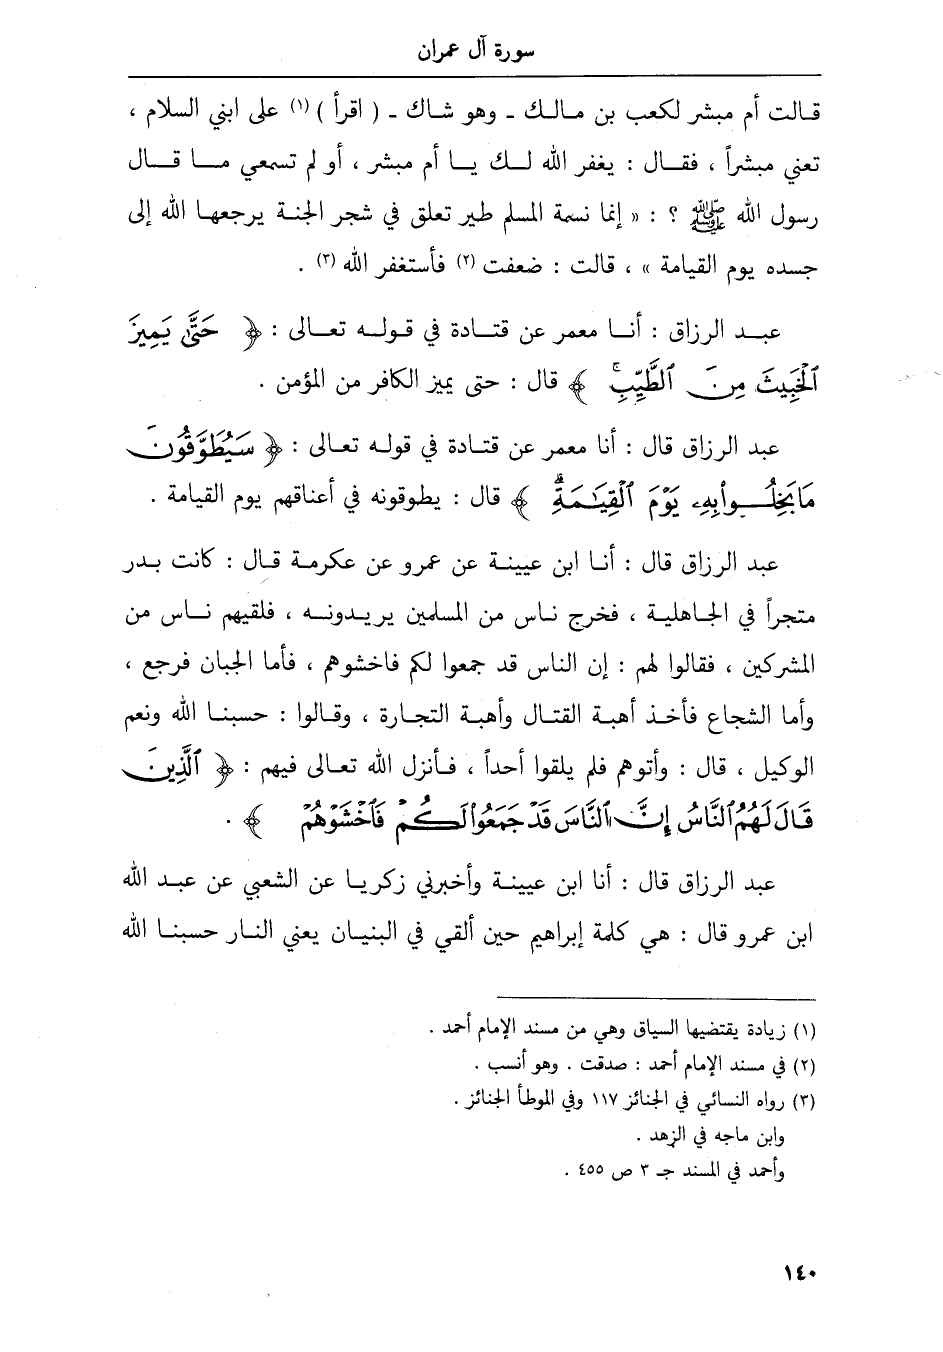 سورة آل عمران
قالت أم مبشر لكعب بن مالك ـ وهو شاك ـ ( اقرأ ) (١) على ابني السلام ،
تعني مبشراً ، فقال : يغفر الله لك يا أم مبشر ، أو لم تسمعي ما قال
رسول الله ﷺ ؟ : « إنما نسمة المسلم طير تعلق في شجر الجنة يرجعها الله إلى
جسده يوم القيامة » ، قالت : ضعفت (٢) فأستغفر الله (٣) .
عبد الرزاق : أنا معمر عن قتادة في قوله تعالى : ﴿ حَتَّىٰ يَمِيزَ
ٱلْخَبِيثَ مِنَ ٱلطَّيِّبِۚ ﴾ قال : حتى يميز الكافر من المؤمن .
عبد الرزاق قال : أنا معمر عن قتادة في قوله تعالى : ﴿ سَيُطَوَّقُونَ
مَا بَخِلُوا۟ بِهِۦ يَوْمَ ٱلْقِيَـٰمَةِۗ ﴾ قال : يطوقونه في أعناقهم يوم القيامة .
عبد الرزاق قال : أنا ابن عيينة عن عمرو عن عكرمة قال : كانت بدر
متجراً في الجاهلية ، فخرج ناس من المسلمين يريدونه ، فلقيهم ناس من
المشركين ، فقالوا لهم : إن الناس قد جمعوا لكم فاخشوهم ، فأما الجبان فرجع ،
وأما الشجاع فأخذ أهبة القتال وأهبة التجارة ، وقالوا : حسبنا الله ونعم
الوكيل ، قال : وأتوهم فلم يلقوا أحداً ، فأنزل الله تعالى فيهم : ﴿ ٱلَّذِينَ
قَالَ لَهُمُ ٱلنَّاسُ إِنَّ ٱلنَّاسَ قَدْ جَمَعُوا۟ لَكُمْ فَٱخْشَوْهُمْ ﴾ .
عبد الرزاق قال : أنا ابن عيينة وأخبرني زكريا عن الشعبي عن عبد الله
ابن عمرو قال : هي كلمة إبراهيم حين ألقي في البنيان يعني النار حسبنا الله
(١) زيادة يقتضيها السياق وهي من مسند الإمام أحمد .
(٢) في مسند الإمام أحمد : صدقت . وهو أنسب .
(٣) رواه النسائي في الجنائز ١١٧ وفي الموطأ الجنائز .
وابن ماجه في الزهد .
وأحمد في المسند جـ ٣ ص ٤٥٥ .
١٤٠